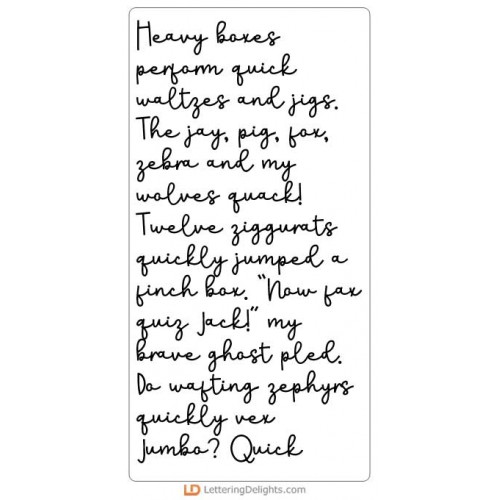 Heavy boxes
perform quick
waltzes and jigs.
The jay, pig, fox,
zebra and my
wolves quack!
Twelve ziggurats
quickly jumped a
finch box. "Now fax
quiz Jack!" my
brave ghost pled.
Do wafting zephyrs
quickly vex
Jumbo? Quick
LD LetteringDelights.com